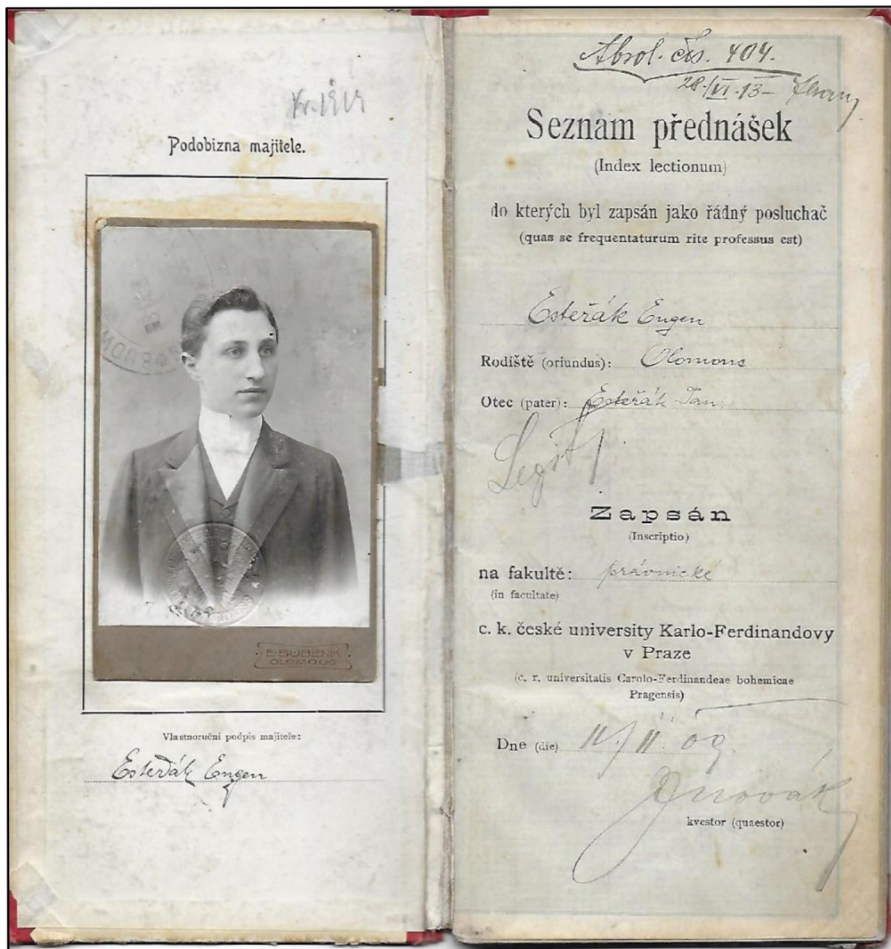 Podobizna majitele.
E. BUBENÍK
OLOMOUC
Vlastnoruční podpis majitele:
Esteřák Eugen
Absol. čís. 404.
28./VI. 13
Seznam přednášek
(Index lectionum)
do kterých byl zapsán jako řádný posluchač
(quas se frequentaturum rite professus est)
Esteřák Eugen
Rodiště (oriundus): Olomouc
Otec (pater): Esteřák Jan
Zapsán
(Inscriptio)
na fakultě: právnické
(in facultate)
c. k. české university Karlo-Ferdinandovy
v Praze
(c. r. universitatis Carolo-Ferdinandeae bohemicae
Pragensis)
Dne (die) 11/II. 09.
kvestor (quaestor)